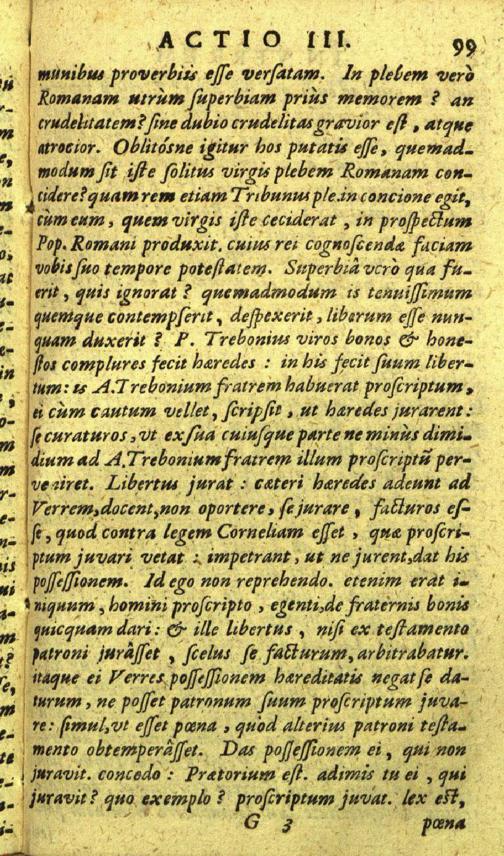 ACTIO III. 99
munibus proverbiis esse versatam. In plebem verò
Romanam utrùm superbiam priùs memorem ? an
crudelitatem? sine dubio crudelitas gravior est, atque
atrocior. Oblitósne igitur hos putatis esse, quemad-
modum sit iste solitus virgis plebem Romanam con-
cidere? quam rem etiam Tribunus ple.in concione egit,
cùm eum, quem virgis iste ceciderat, in prospectum
Pop. Romani produxit. cuius rei cognoscendæ faciam
vobis suo tempore potestatem. Superbiâ verò qua fu-
erit, quis ignorat ? quemadmodum is tenuissimum
quemque contempserit, despexerit, liberum esse nun-
quam duxerit ? P. Trebonius viros bonos & hone-
stos complures fecit hæredes : in his fecit suum liber-
tum: is A.Trebonium fratrem habuerat proscriptum,
ei cùm cautum vellet, scripsit, ut hæredes jurarent:
se curaturos, vt ex sua cuiusque parte ne minùs dimi-
dium ad A.Trebonium fratrem illum proscriptũ per-
veniret. Libertus jurat : cæteri hæredes adeunt ad
Verrem, docent, non oportere, se jurare, facturos es-
se, quod contra legem Corneliam esset, quæ proscri-
ptum juvari vetat : impetrant, ut ne jurent, dat his
possessionem. Id ego non reprehendo. etenim erat i-
niquum, homini proscripto, egenti, de fraternis bonis
quicquam dari: & ille libertus, nisi ex testamento
patroni jurâsset, scelus se facturum, arbitrabatur.
itaque ei Verres possessionem hæreditatis negat se da-
turum, ne posset patronum suum proscriptum juva-
re: simul, vt esset pœna, quòd alterius patroni testa-
mento obtemperâsset. Das possessionem ei, qui non
juravit. concedo : Prætorium est. adimis tu ei, qui
juravit? quo exemplo ? proscriptum juvat. lex est,
G 3 pœna